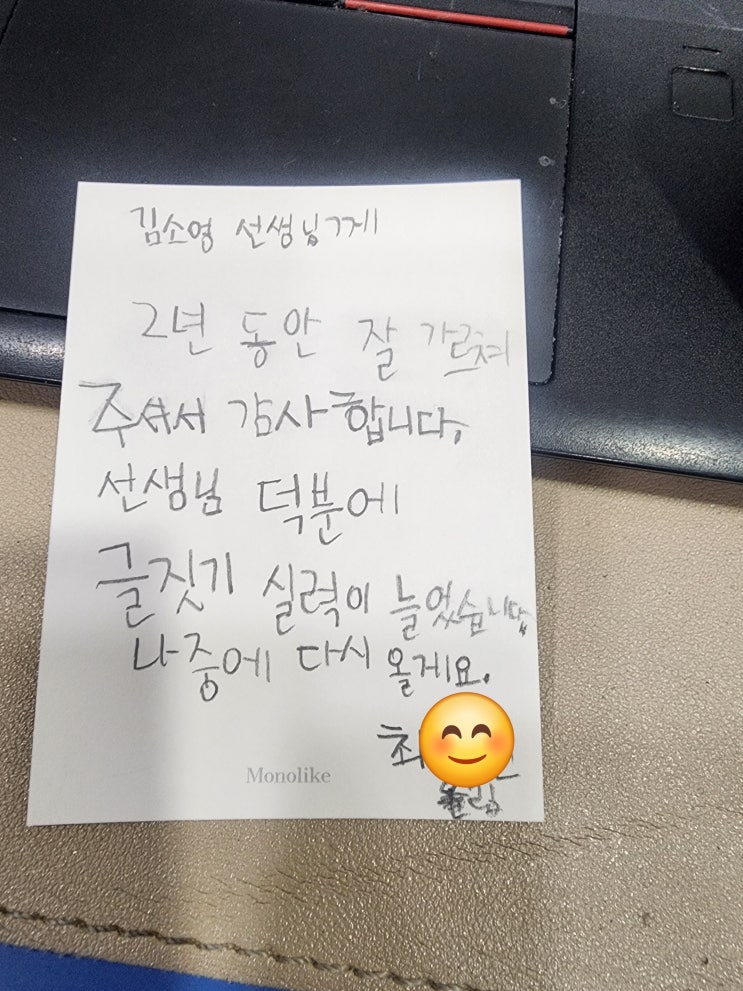 김소영 선생님께
2년 동안 잘 가르쳐
주셔서 감사합니다.
선생님 덕분에
글짓기 실력이 늘었습니다
나중에 다시 올게요.
최
올림
Monolike